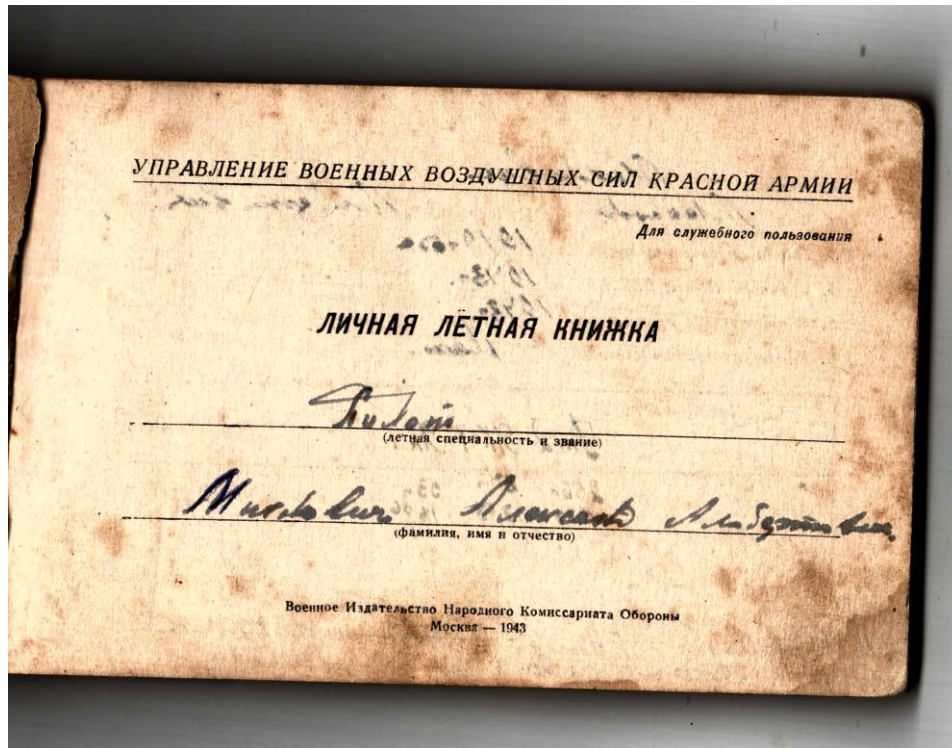 УПРАВЛЕНИЕ ВОЕННЫХ ВОЗДУШНЫХ СИЛ КРАСНОЙ АРМИИ
Для служебного пользования
ЛИЧНАЯ ЛЁТНАЯ КНИЖКА
Пилот
(летная специальность и звание)
Александр Альбертович
(фамилия, имя и отчество)
Военное Издательство Народного Комиссариата Обороны
Москва — 1943